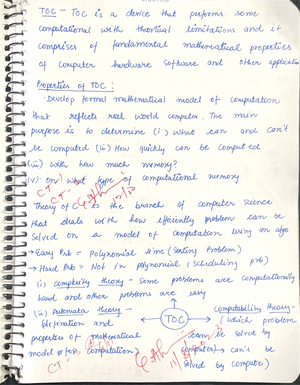 TOC - TOC is a device that performs some
computational with theoritical limitations and it
comprises of fundamental mathematical properties
of computer hardware software and other application
Properties of TOC :
Develop formal mathematical model of computation
that reflects real world computer. The main
purpose is to determine (i) what can and can't
be computed (ii) How quickly can be computed
(iii) with how much memory?
(iv) on what type of computational memory
Theory of C is the branch of computer science
that deals with how efficiently problem can be
solved on a model of computation using an algo
→ Easy Prb = Polynomial time (Sorting Problem)
→ Hard Prb = Not in polynomial (Scheduling prb)
(i) complexity theory - Some problems are computationally
hand and other problems are easy
(ii) Automata theory - TOC computability theory -
(Definition and (which problem
properties of mathematical can be solved by
model of computation) computer, can't be
solved by computer)